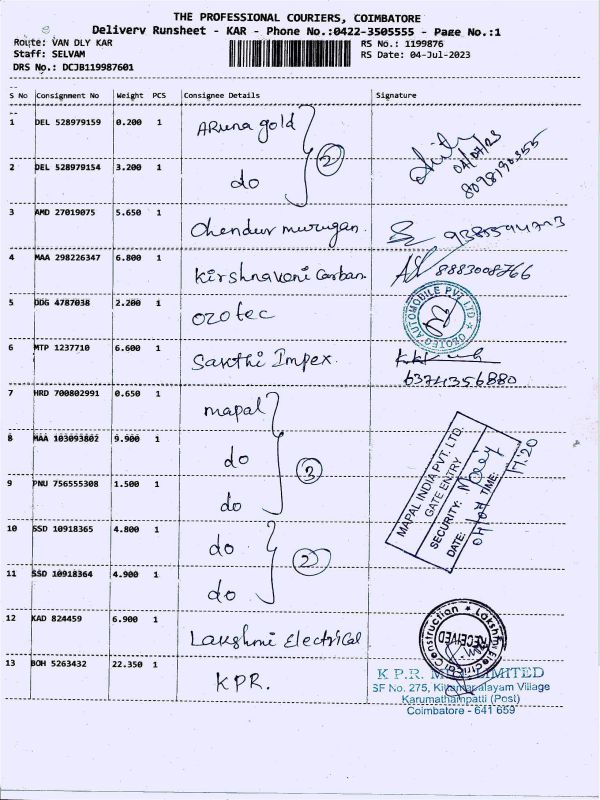 THE PROFESSIONAL COURIERS, COIMBATORE
Delivery Runsheet - KAR - Phone No.:0422-3505555 - Page No.:1
Route: VAN DLY KAR RS No.: 1199876
Staff: SELVAM RS Date: 04-Jul-2023
DRS No.: DCJB119987601
S No Consignment No Weight PCS Consignee Details Signature
1 DEL 528979159 0.200 1 Aruna gold
04/07/23
8098190355
2 DEL 528979154 3.200 1 do
2
3 AMD 27019075 5.650 1 Chendur murugan.
4 MAA 298226347 6.800 1 Kirshnaveni Carban 8883008766
5 DDG 4787038 2.200 1 OZOTEC
OZOTEC AUTOMOBILE PVT. LTD
6 MTP 1237710 6.600 1 Sakthi Impex.
6374356880
7 HRD 700802991 0.650 1 mapal
8 MAA 103093802 9.900 1 do
3
9 PNU 756555308 1.500 1 do
MAPAL INDIA PVT. LTD.
GATE ENTRY
SECURITY:
DATE: 04/07 TIME: 17.20
10 SSD 10918365 4.800 1 do
2
11 SSD 10918364 4.900 1 do
12 KAD 824459 6.900 1 Lakshmi Electrical
Lakshmi Electrical Construction
RECEIVED
13 BOH 5263432 22.350 1 KPR.
K P.R. LIMITED
SF No. 275, Kittampalayam Village
Karumathampatti (Post)
Coimbatore - 641 659